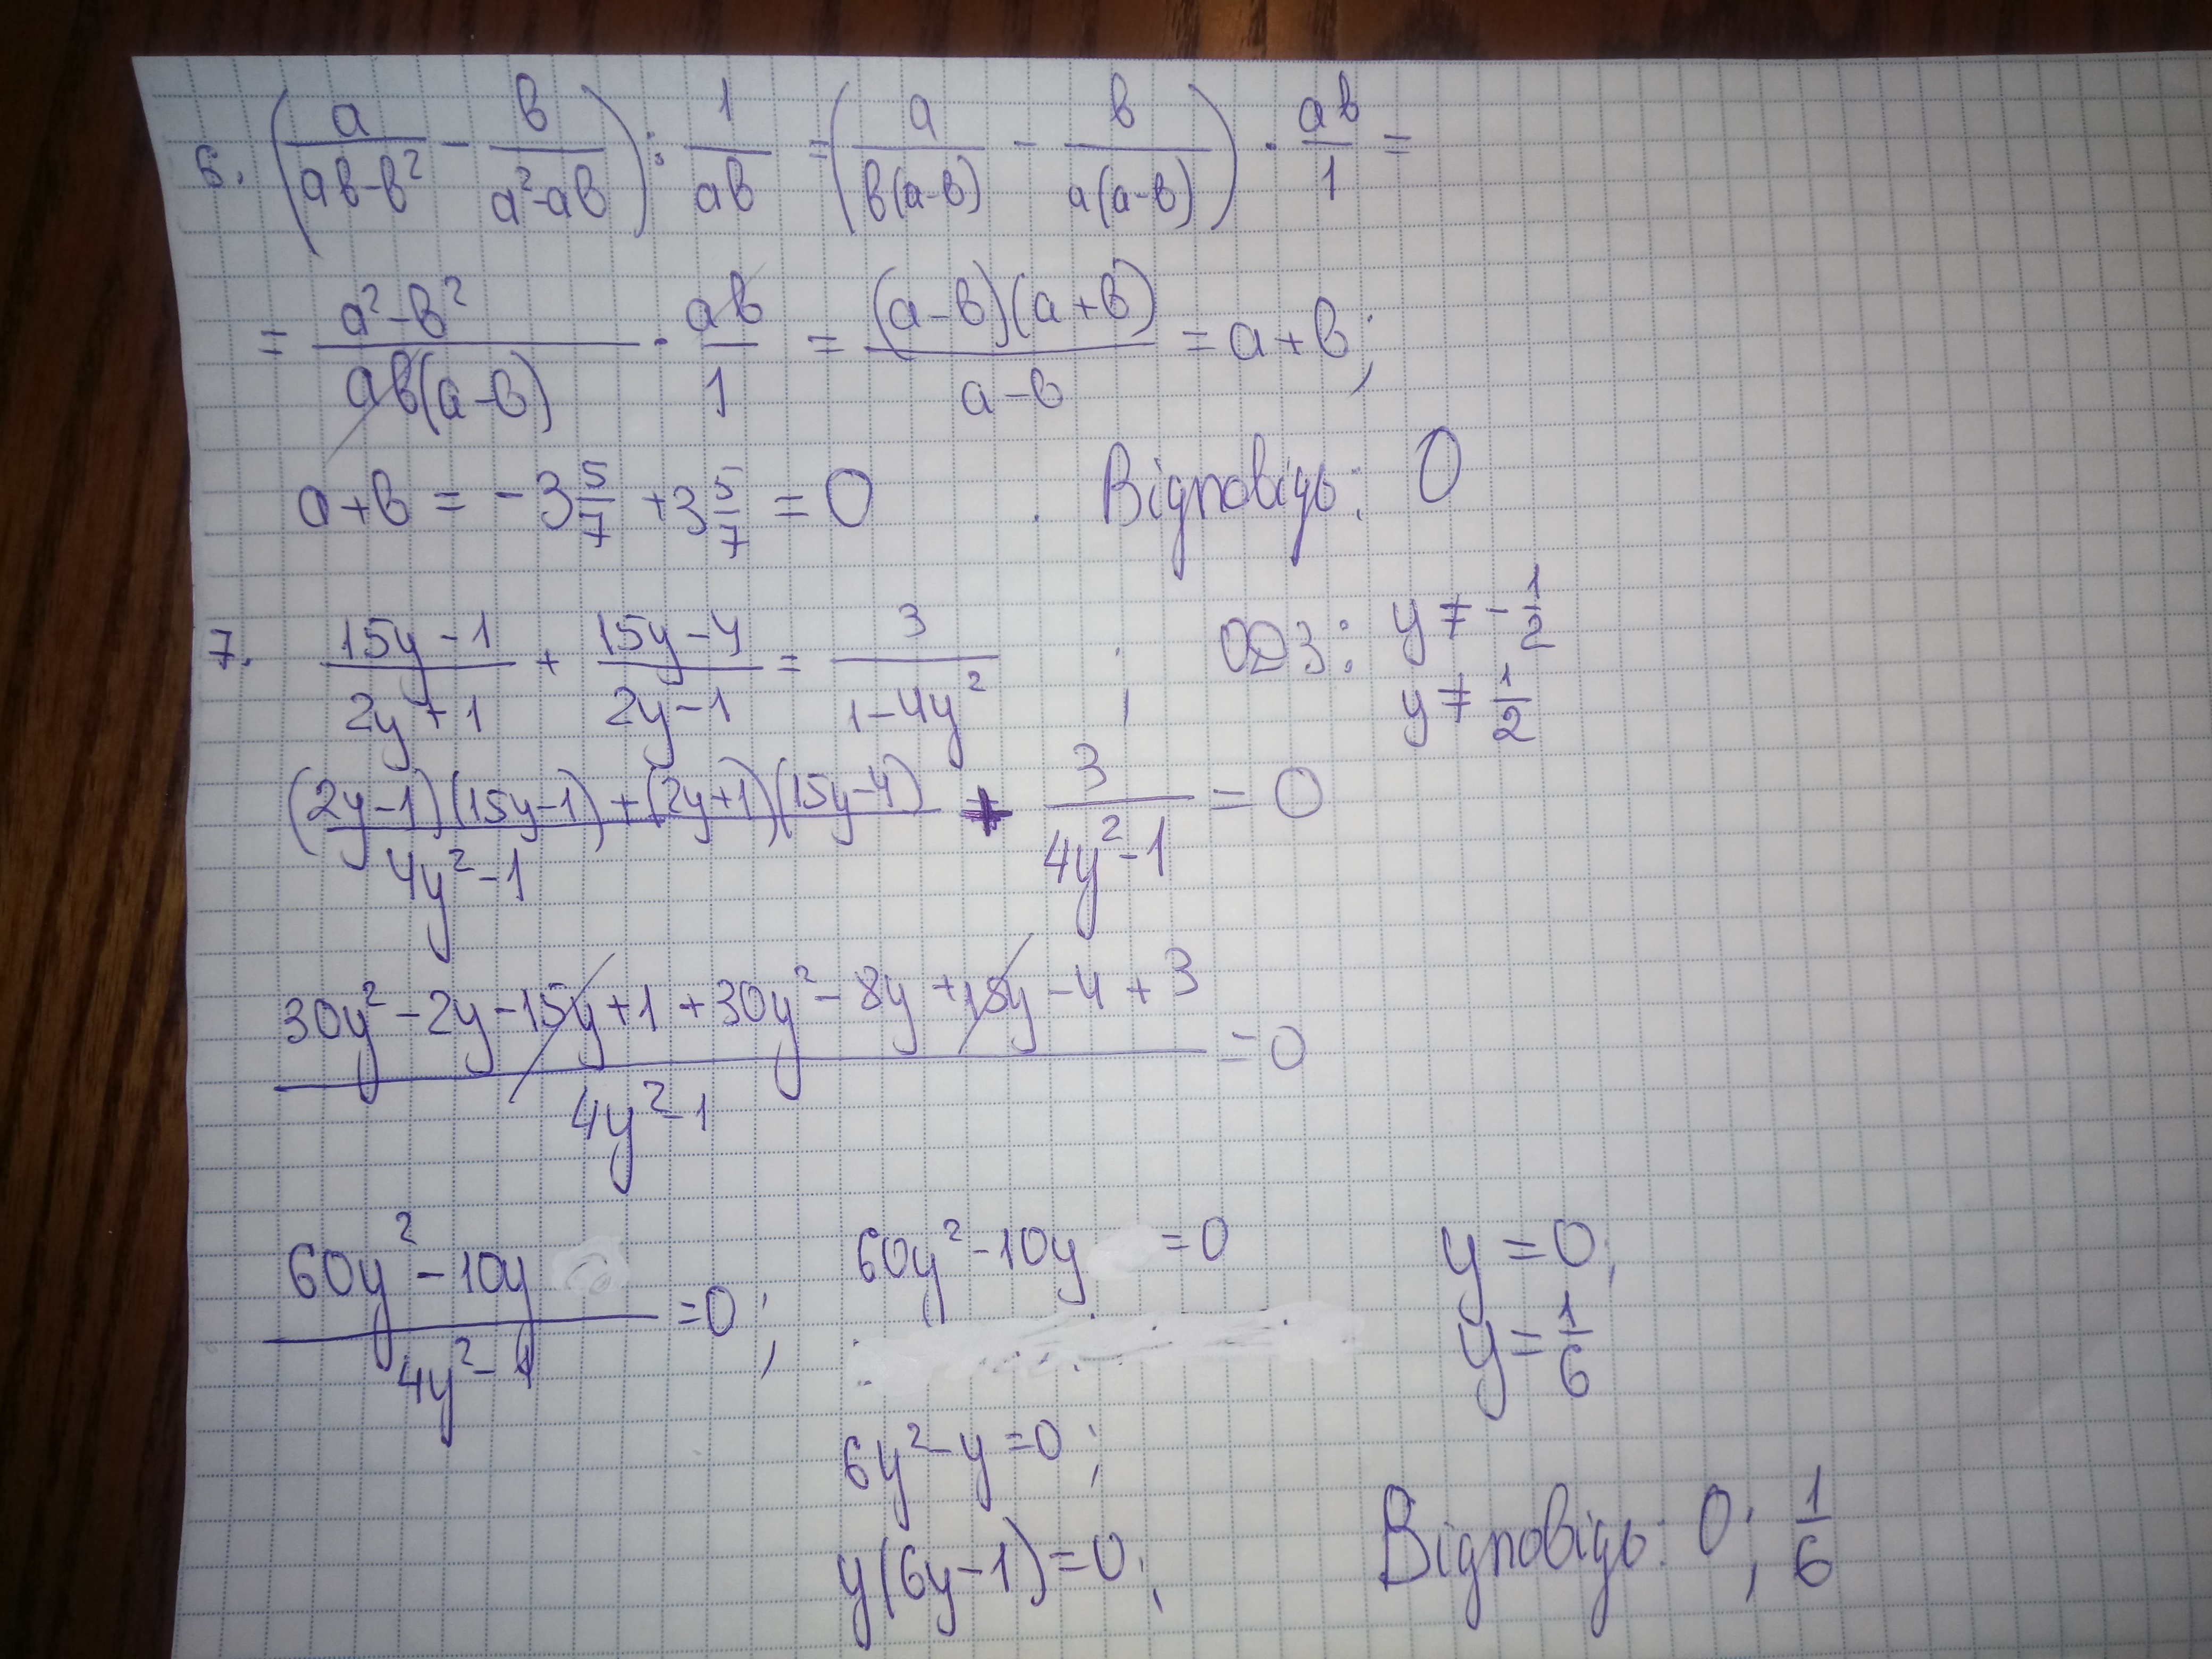 6. (a/(ab-b²) - b/(a²-ab)) : 1/ab = (a/(b(a-b)) - b/(a(a-b))) · ab/1 =
= (a²-b²)/(ab(a-b)) · ab/1 = ((a-b)(a+b))/(a-b) = a+b;
a+b = -3 5/7 + 3 5/7 = 0 . Відповідь: 0
7. (15y-1)/(2y+1) + (15y-4)/(2y-1) = 3/(1-4y²) ; ОДЗ: y ≠ -1/2
y ≠ 1/2
((2y-1)(15y-1)+(2y+1)(15y-4))/(4y²-1) + 3/(4y²-1) = 0
(30y²-2y-15y+1+30y²-8y+15y-4+3)/(4y²-1) = 0
(60y²-10y)/(4y²-1) = 0; 60y²-10y = 0 y = 0;
y = 1/6
6y²-y=0;
y(6y-1)=0; Відповідь: 0; 1/6